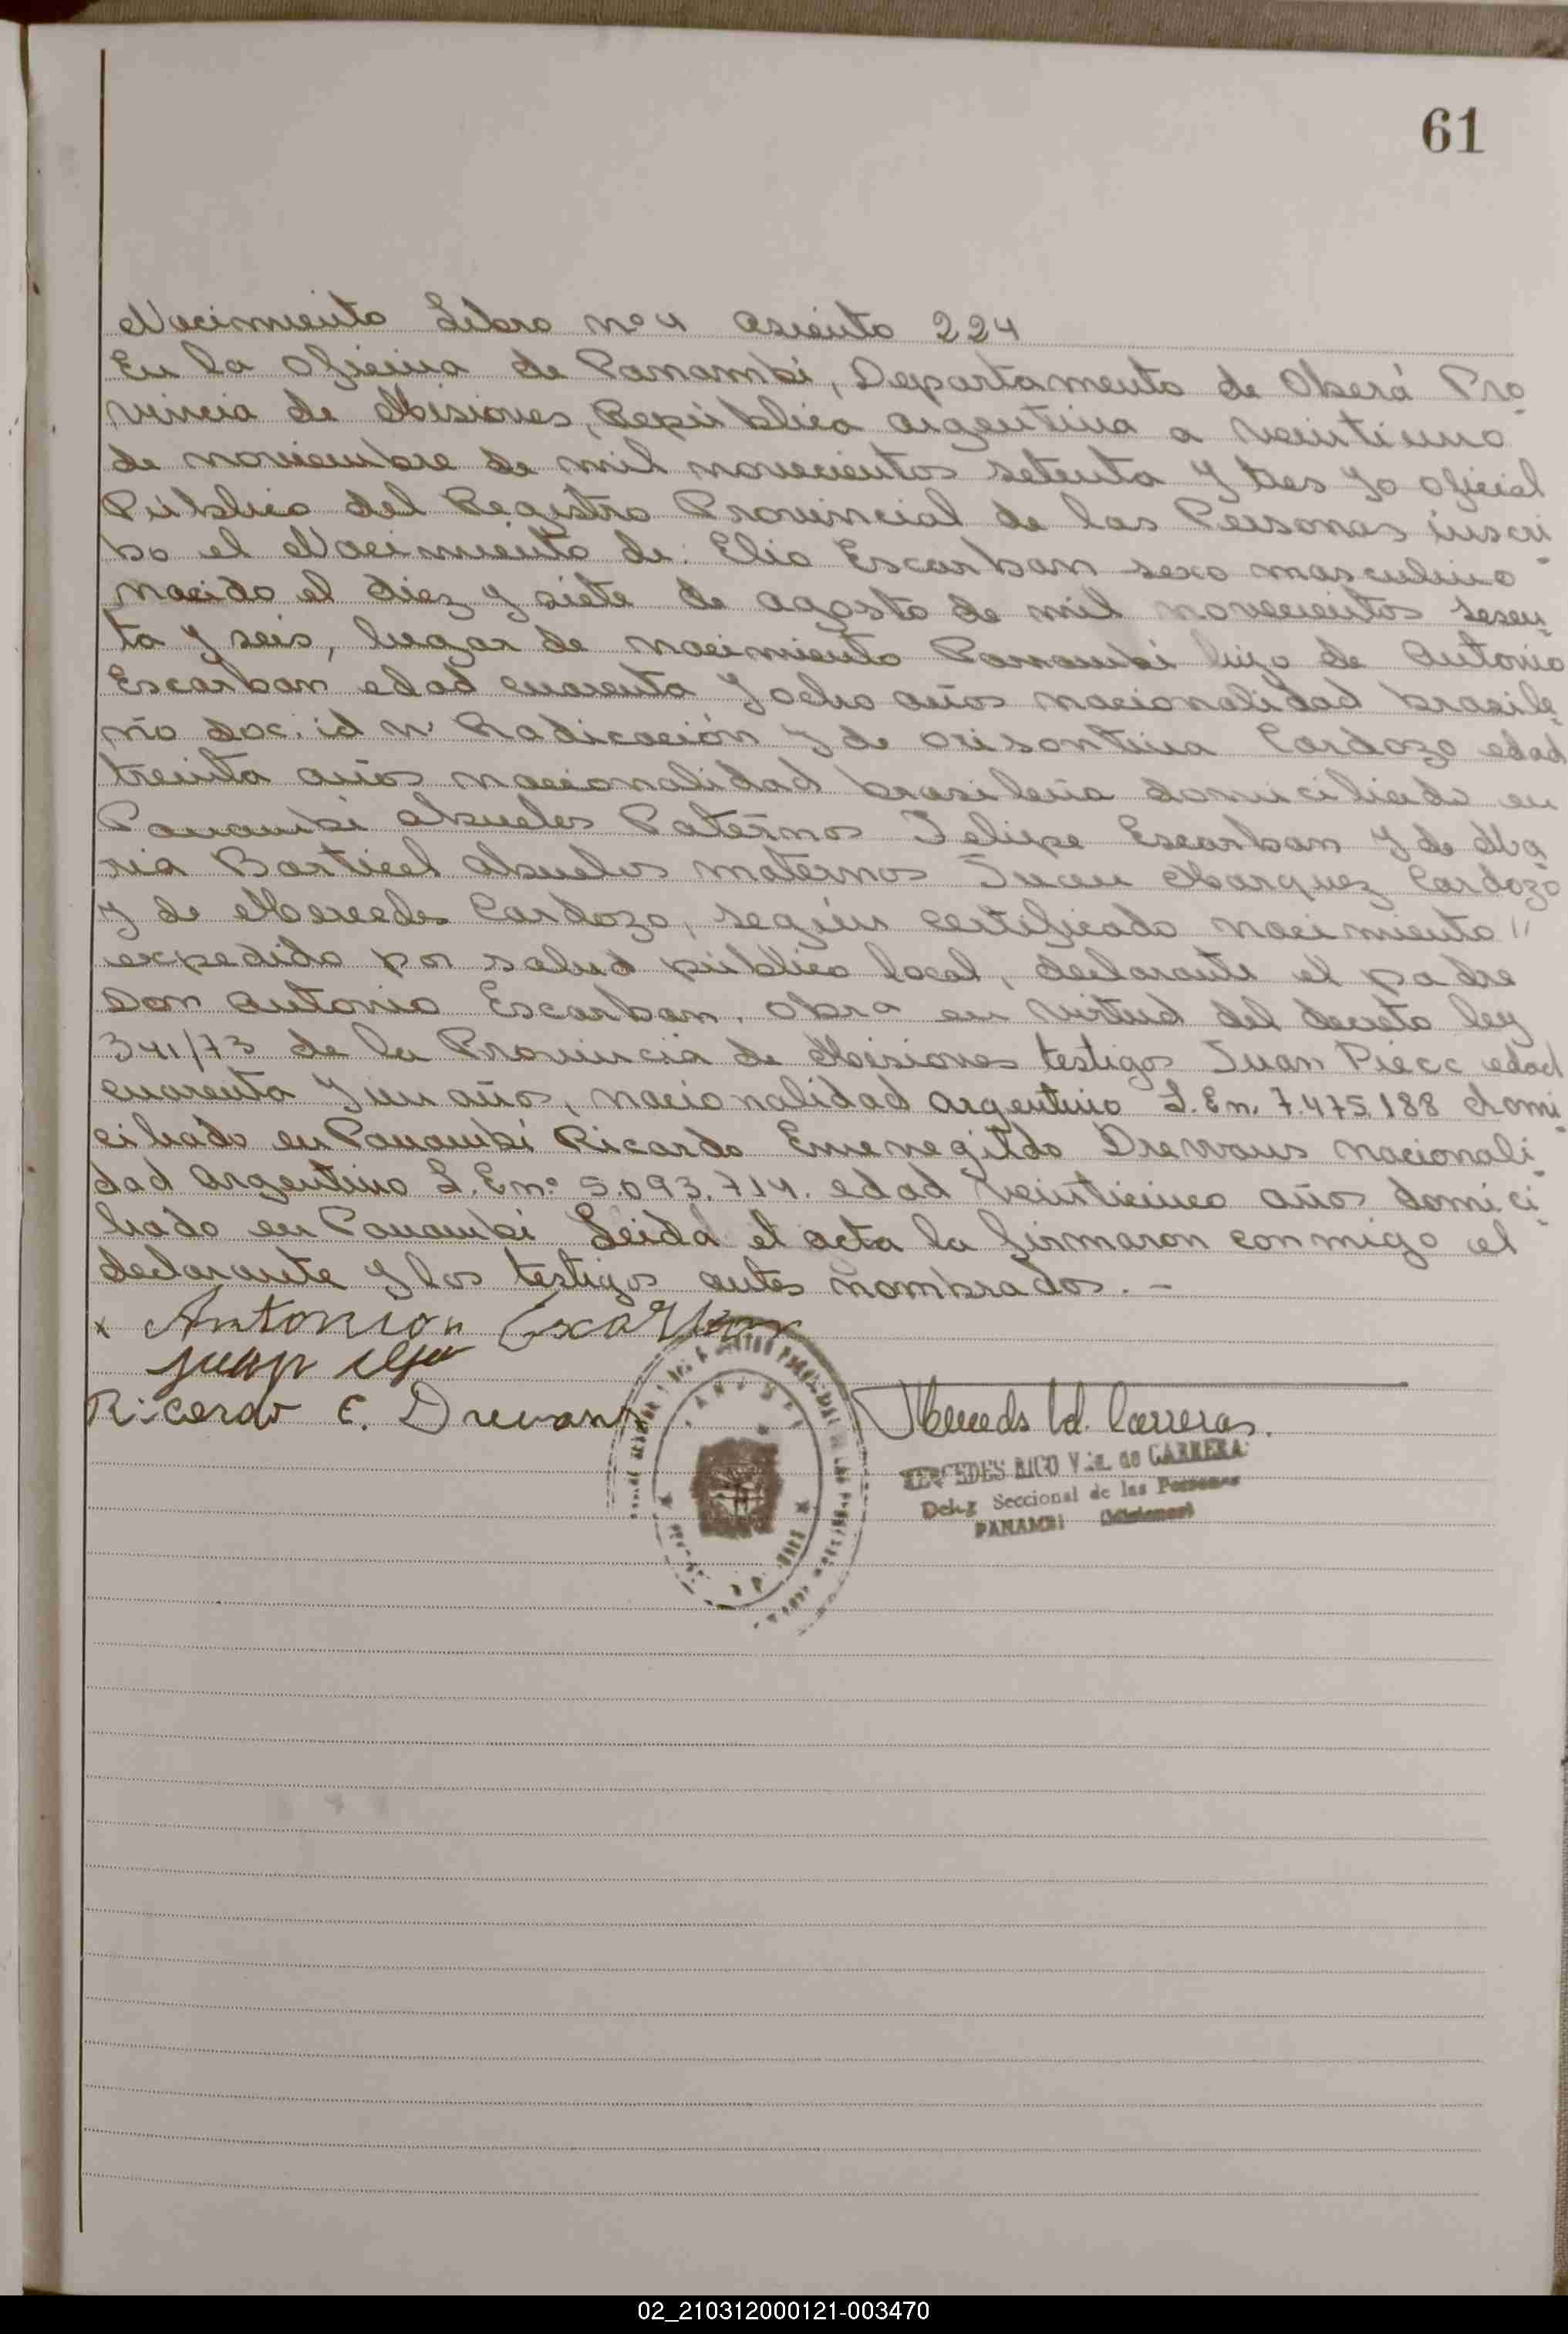 61
Nacimiento Libro nº 4 asiento 224
En la Oficina de Panambi, Departamento de Oberá Pro-
vincia de Misiones, República argentina a veintiuno
de noviembre de mil novecientos setenta y tres yo oficial
Público del Registro Provincial de las Personas inscri-
bo el Nacimiento de: Elio Escarban sexo masculino
nacido el diez y siete de agosto de mil novecientos sesen-
ta y seis, lugar de nacimiento Panambi hijo de Antonio
Escarban edad cuarenta y ocho años nacionalidad brasile-
ño doc. id nº Radicación y de orisontina Cardozo edad
treinta años nacionalidad brasileña domiciliado en
Panambi abuelos Paternos Felipe Escarban y de Ma-
ria Barticel abuelos maternos Juan Marquez Cardozo
y de Mercedes Cardozo, según certificado nacimiento "
expedido por salud público local, declarante el padre
Don Antonio Escarban. Obra en virtud del decreto ley
341/73 de la Provincia de Misiones testigos Juan Piecc edad
cuarenta y un años, nacionalidad argentino L. En. 7.475.188 domi-
ciliado en Panambi Ricardo Emenegildo Drewans nacionali-
dad Argentino L. E nº 5.093.714. edad veinticinco años domici-
liado en Panambi Leida el acta la firmaron conmigo el
declarante y los testigos antes nombrados. -
x Antonion Escarban
Juan
Ricardo E. Drewans
Mercedes Vd. Carreras.
MERCEDES RICO Vda. de CARRERA
Deleg Seccional de las Personas
PANAMBI (Misiones)
02_210312000121-003470